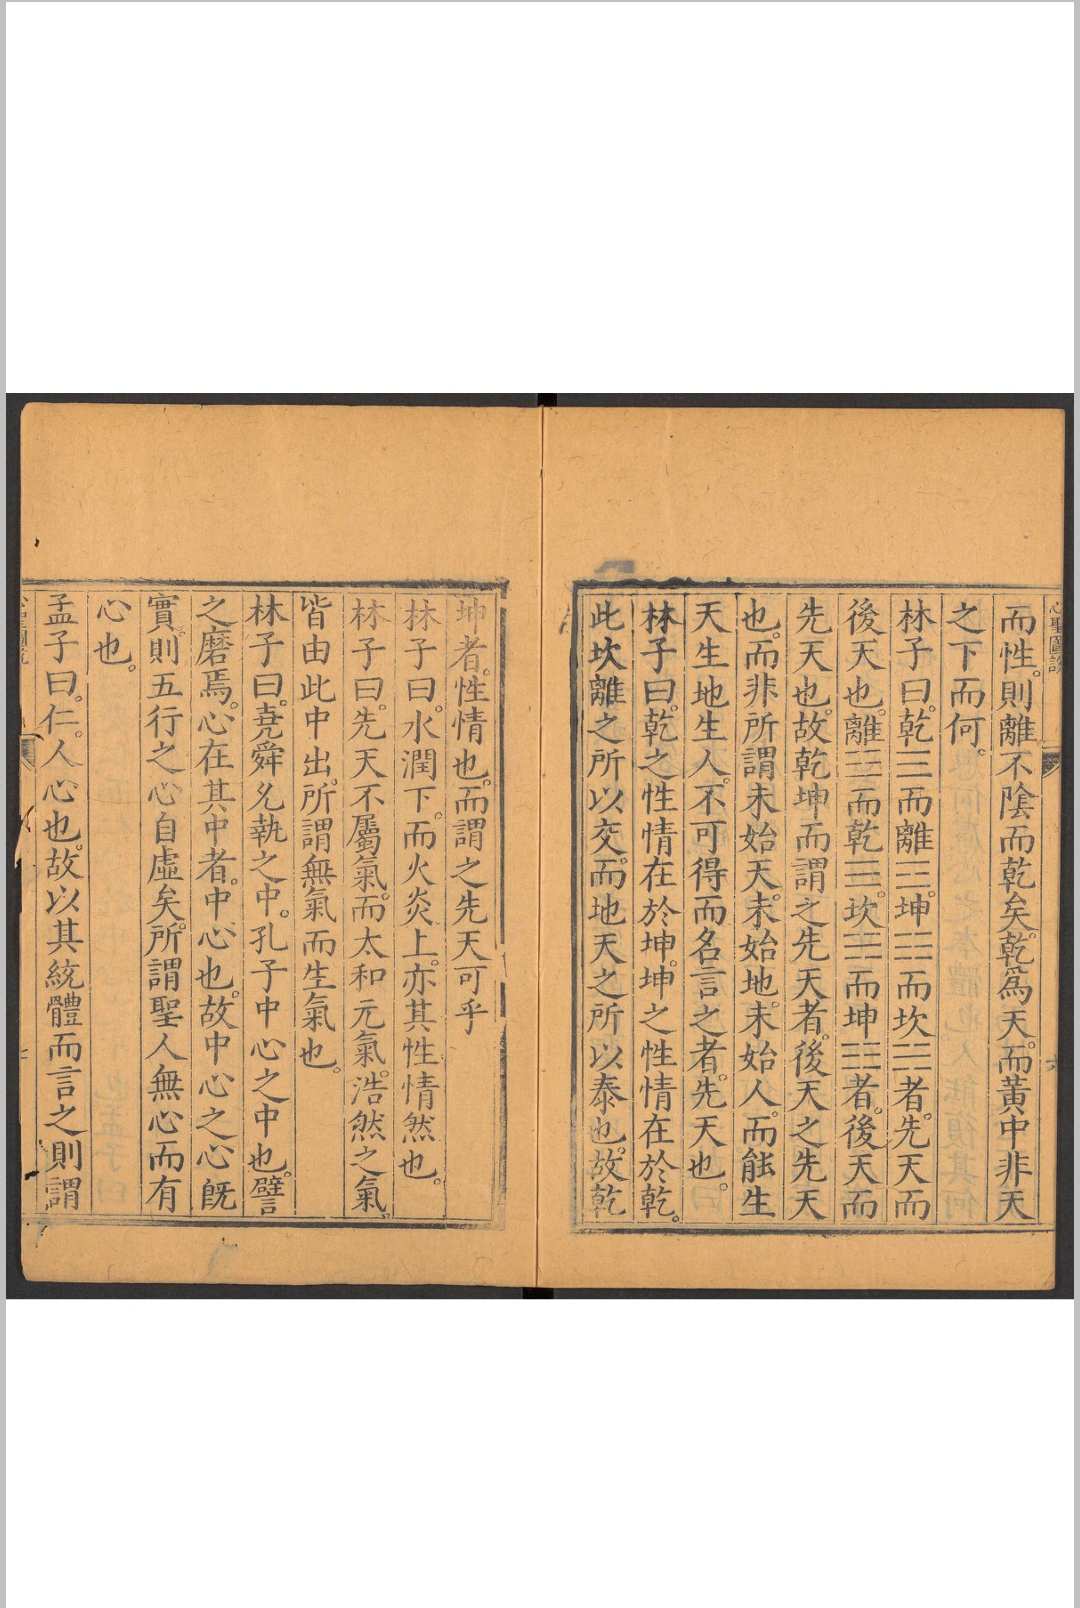 心聖圖說
而性。則離不陰而乾矣。乾爲天。而黃中非天
之下而何。
林子曰。乾☰而離☲。坤☷而坎☵者。先天而
後天也。離☲而乾☰。坎☵而坤☷者。後天而
先天也。故乾坤而謂之先天者。後天之先天
也。而非所謂未始天。未始地。未始人。而能生
天生地生人。不可得而名言之者。先天也。
林子曰。乾之性情在於坤。坤之性情在於乾。
此坎離之所以交。而地天之所以泰也。故乾
坤者。性情也。而謂之先天可乎
林子曰。水潤下。而火炎上。亦其性情然也。
林子曰。先天不屬氣。而太和元氣。浩然之氣。
皆由此中出。所謂無氣而生氣也。
林子曰。堯舜允執之中。孔子中心之中也。譬
之磨焉。心在其中者。中心也。故中心之心旣
實。則五行之心自虛矣。所謂聖人無心而有
心也。
孟子曰。仁。人心也。故以其統體而言之則謂